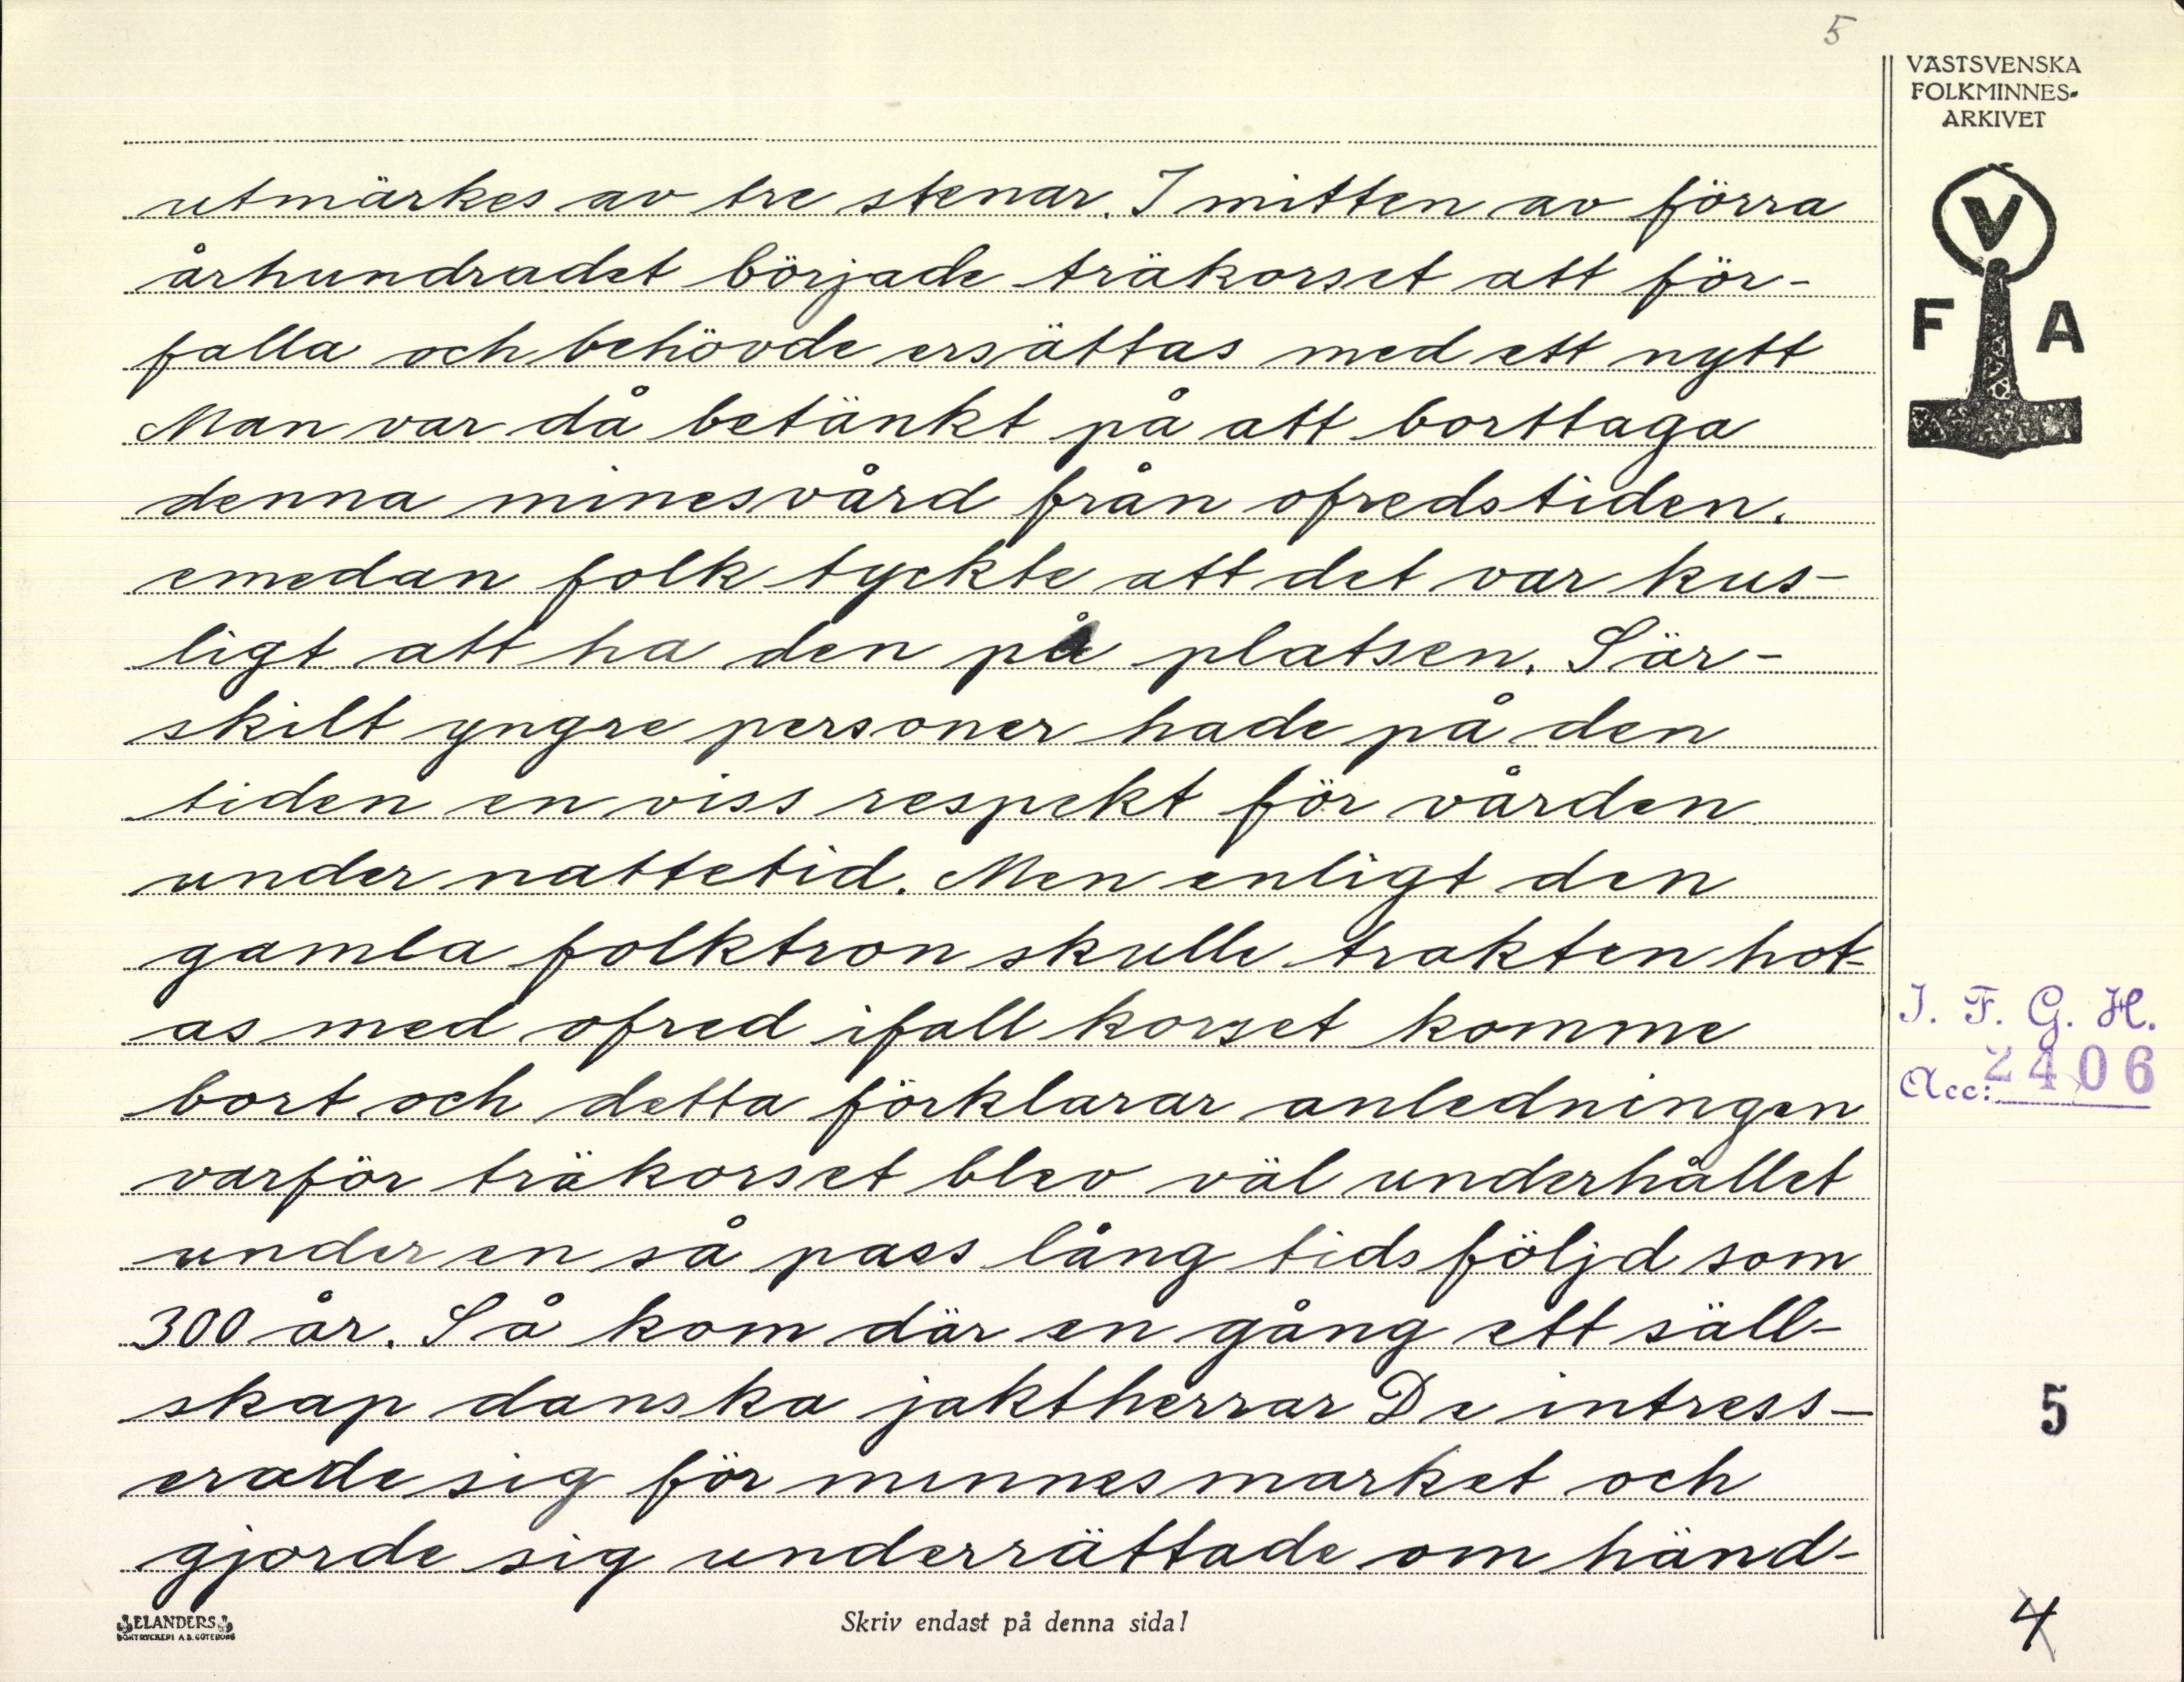 5
VÄSTSVENSKA
FOLKMINNES-
ARKIVET
V
F A
utmärkes av tre stenar. I mitten av förra
århundradet började träkorset att för-
falla och behövde ersättas med ett nytt
Man var då betänkt på att borttaga
denna minesvård från ofredstiden.
emedan folk tyckte att det var kus-
ligt att ha den på platsen. Sär-
skilt yngre personer hade på den
tiden en viss respekt för vården
under nattetid. Men enligt den
gamla folktron skulle trakten hot-
as med ofred ifall korset komme
bort och detta förklarar anledningen
varför träkorset blev väl underhållet
under en så pass lång tidsföljd som
300 år. Så kom där en gång ett säll-
skap danska jaktherrar De intress-
erade sig för minnesmarket och
gjorde sig underrättade om händ-
I. F. G. H.
Acc: 2406
5
4
ELANDERS
BOKTRYCKERI A.B. GÖTEBORG
Skriv endast på denna sida!